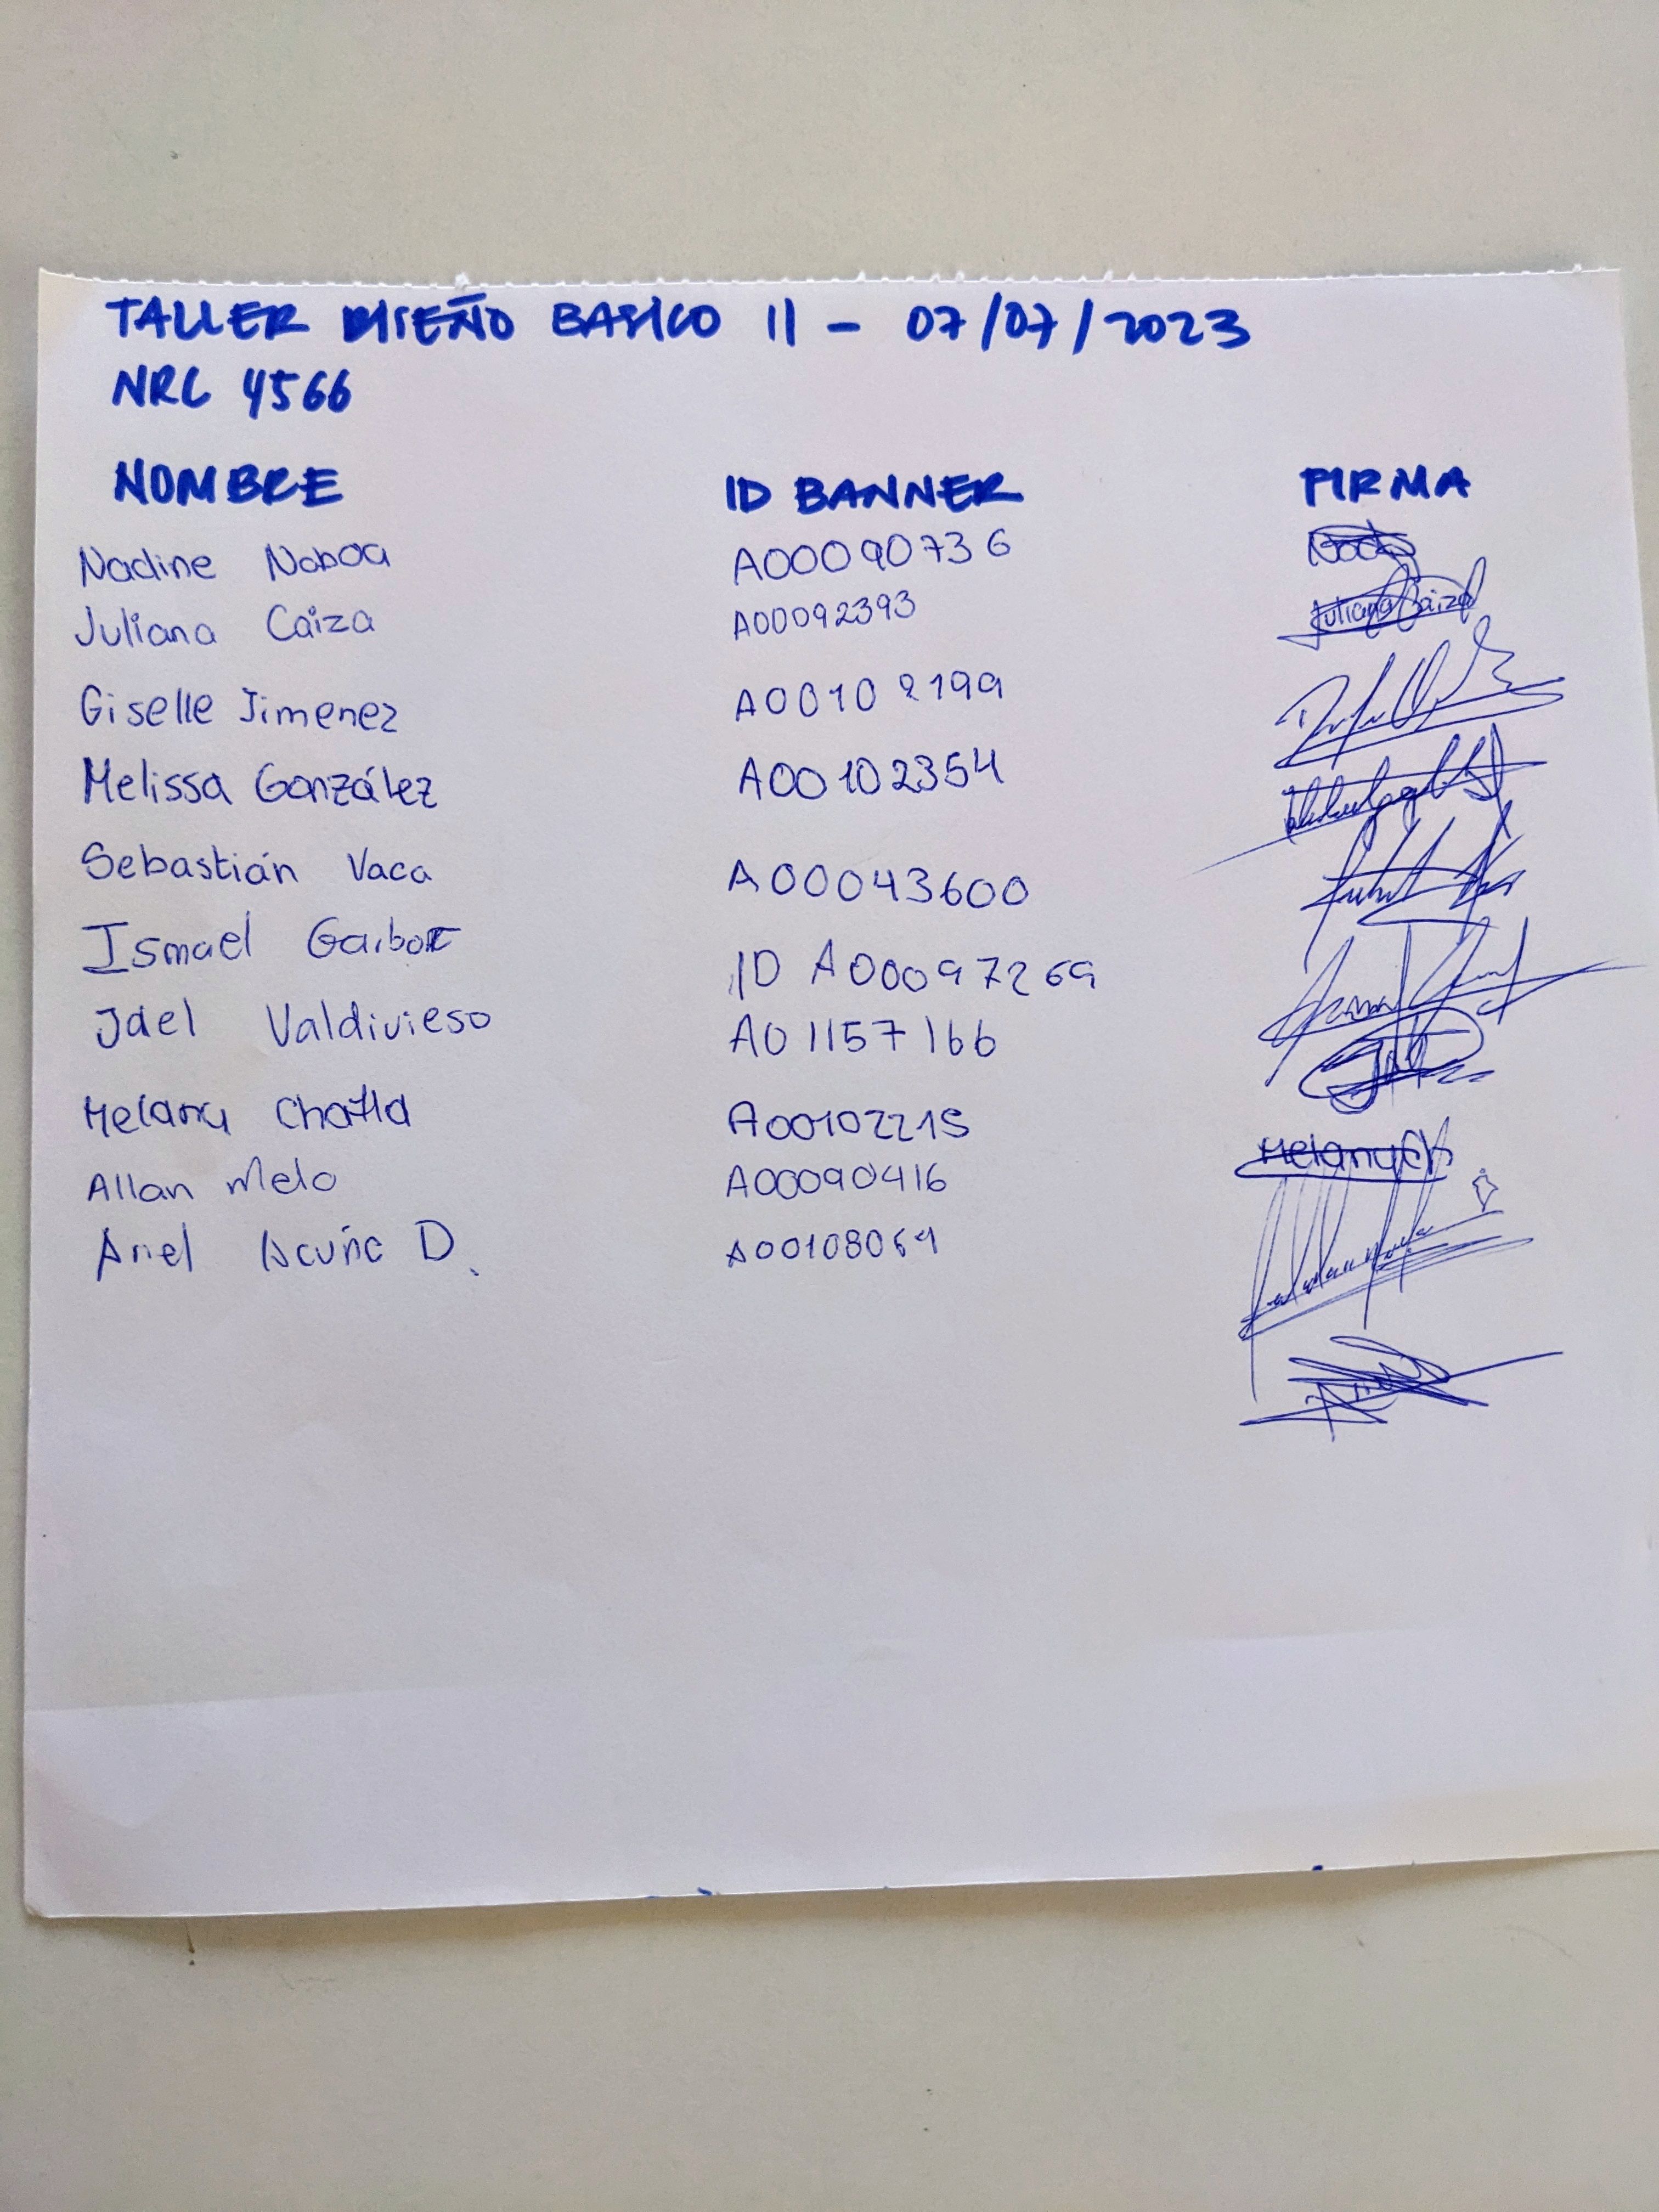 TALLER DISEÑO BASICO II - 07/07/2023
NRC 4566
NOMBRE ID BANNER FIRMA
Nadine Noboa A00090736
Juliana Caiza A00092393 Juliana Caiza
Giselle Jimenez A00102199
Melissa González A00102354
Sebastián Vaca A00043600
Ismael Gaibor ID A00097269
Jael Valdivieso A01157166
Melany Chafla A00102215 Melany Ch
Allan Melo A00090416
Ariel Acuña D. A00108069